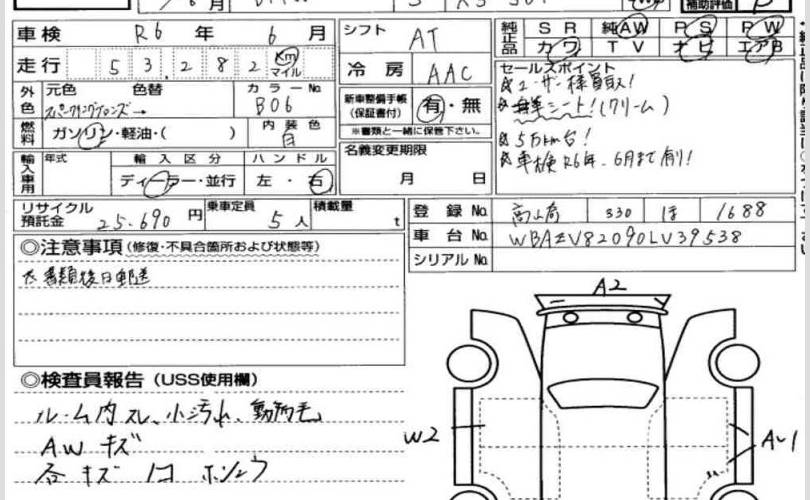 補助評価
車検 R6 年 6 月
シフト AT
純正品 SR 純AW PS PW
カワ TV ナビ エアB
走行 53,282 Km マイル
冷房 AAC
セールスポイント
☆ユーザー様買取!
☆革シート!(クリーム)
☆5万km台!
☆車検R6年、6月まで有り!
外色 元色 色替 カラーNo
B06
新車整備手帳(保証書付) 有・無
※書類と一緒に保管下さい。
燃料 ガソリン・軽油・( ) 内装色
白
名義変更期限
月 日
輸入車用 年式 輸入区分 ハンドル
ディーラー・並行 左・右
リサイクル預託金 25,690 円 乗車定員 5人 積載量 t
登録No. 330 ほ 1688
車台No. WBAZV82090LV39538
シリアルNo.
◎注意事項(修復・不具合箇所および状態等)
☆書類後日郵送
◎検査員報告(USS使用欄)
ルーム内スレ、小汚れ、動物毛
AWキズ
A2
W2